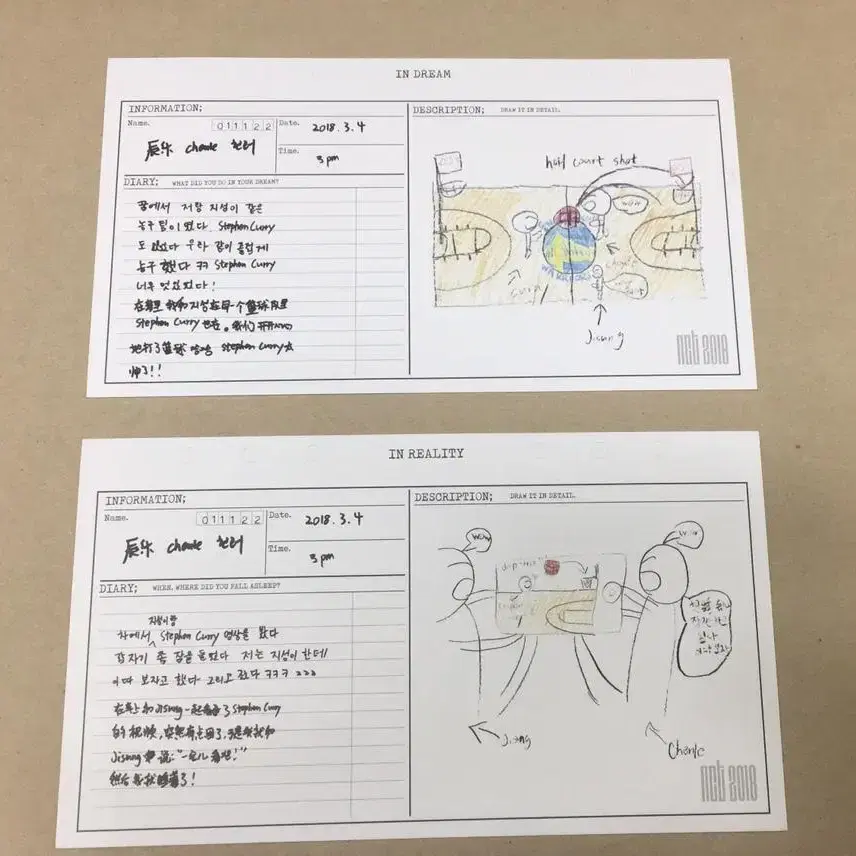 IN DREAM
INFORMATION;
Name. 011122
辰乐 chenle 천러
Date. 2018.3.4
Time. 3 pm
DIARY; WHAT DID YOU DO IN YOUR DREAM?
꿈에서 저랑 지성이 같은
농구 팀이 였다. Stephen Curry
도 있었다 우리 같이 즐겁게
농구 했다 ㅋㅋ Stephen Curry
너무 멋있었다!
在梦里 我和지성在同一个篮球队里
Stephen Curry也在。我们开开心心
地打了篮球 哈哈 Stephen Curry太
帅了!!
DESCRIPTION; DRAW IT IN DETAIL.
half court shot
wow
WARRIORS
Chenle
Jisung
nct 2018
IN REALITY
INFORMATION;
Name. 011122
辰乐 chenle 천러
Date. 2018.3.4
Time. 3 pm
DIARY; WHEN, WHERE DID YOU FALL ASLEEP?
지성이랑
차에서 Stephen Curry 영상을 봤다
갑자기 좀 잠을 들렸다 저는 지성이 한테
이따 보자고 했다 그리고 잤다 ㅋㅋㅋ zzz
在车上和Jisung一起看了Stephen Curry
的视频,突然有点困了,于是我就和
Jisung 说:"一会儿看吧!"
然后我就睡着了!
DESCRIPTION; DRAW IT IN DETAIL.
wow
wow
Jisung
Chenle
nct 2018